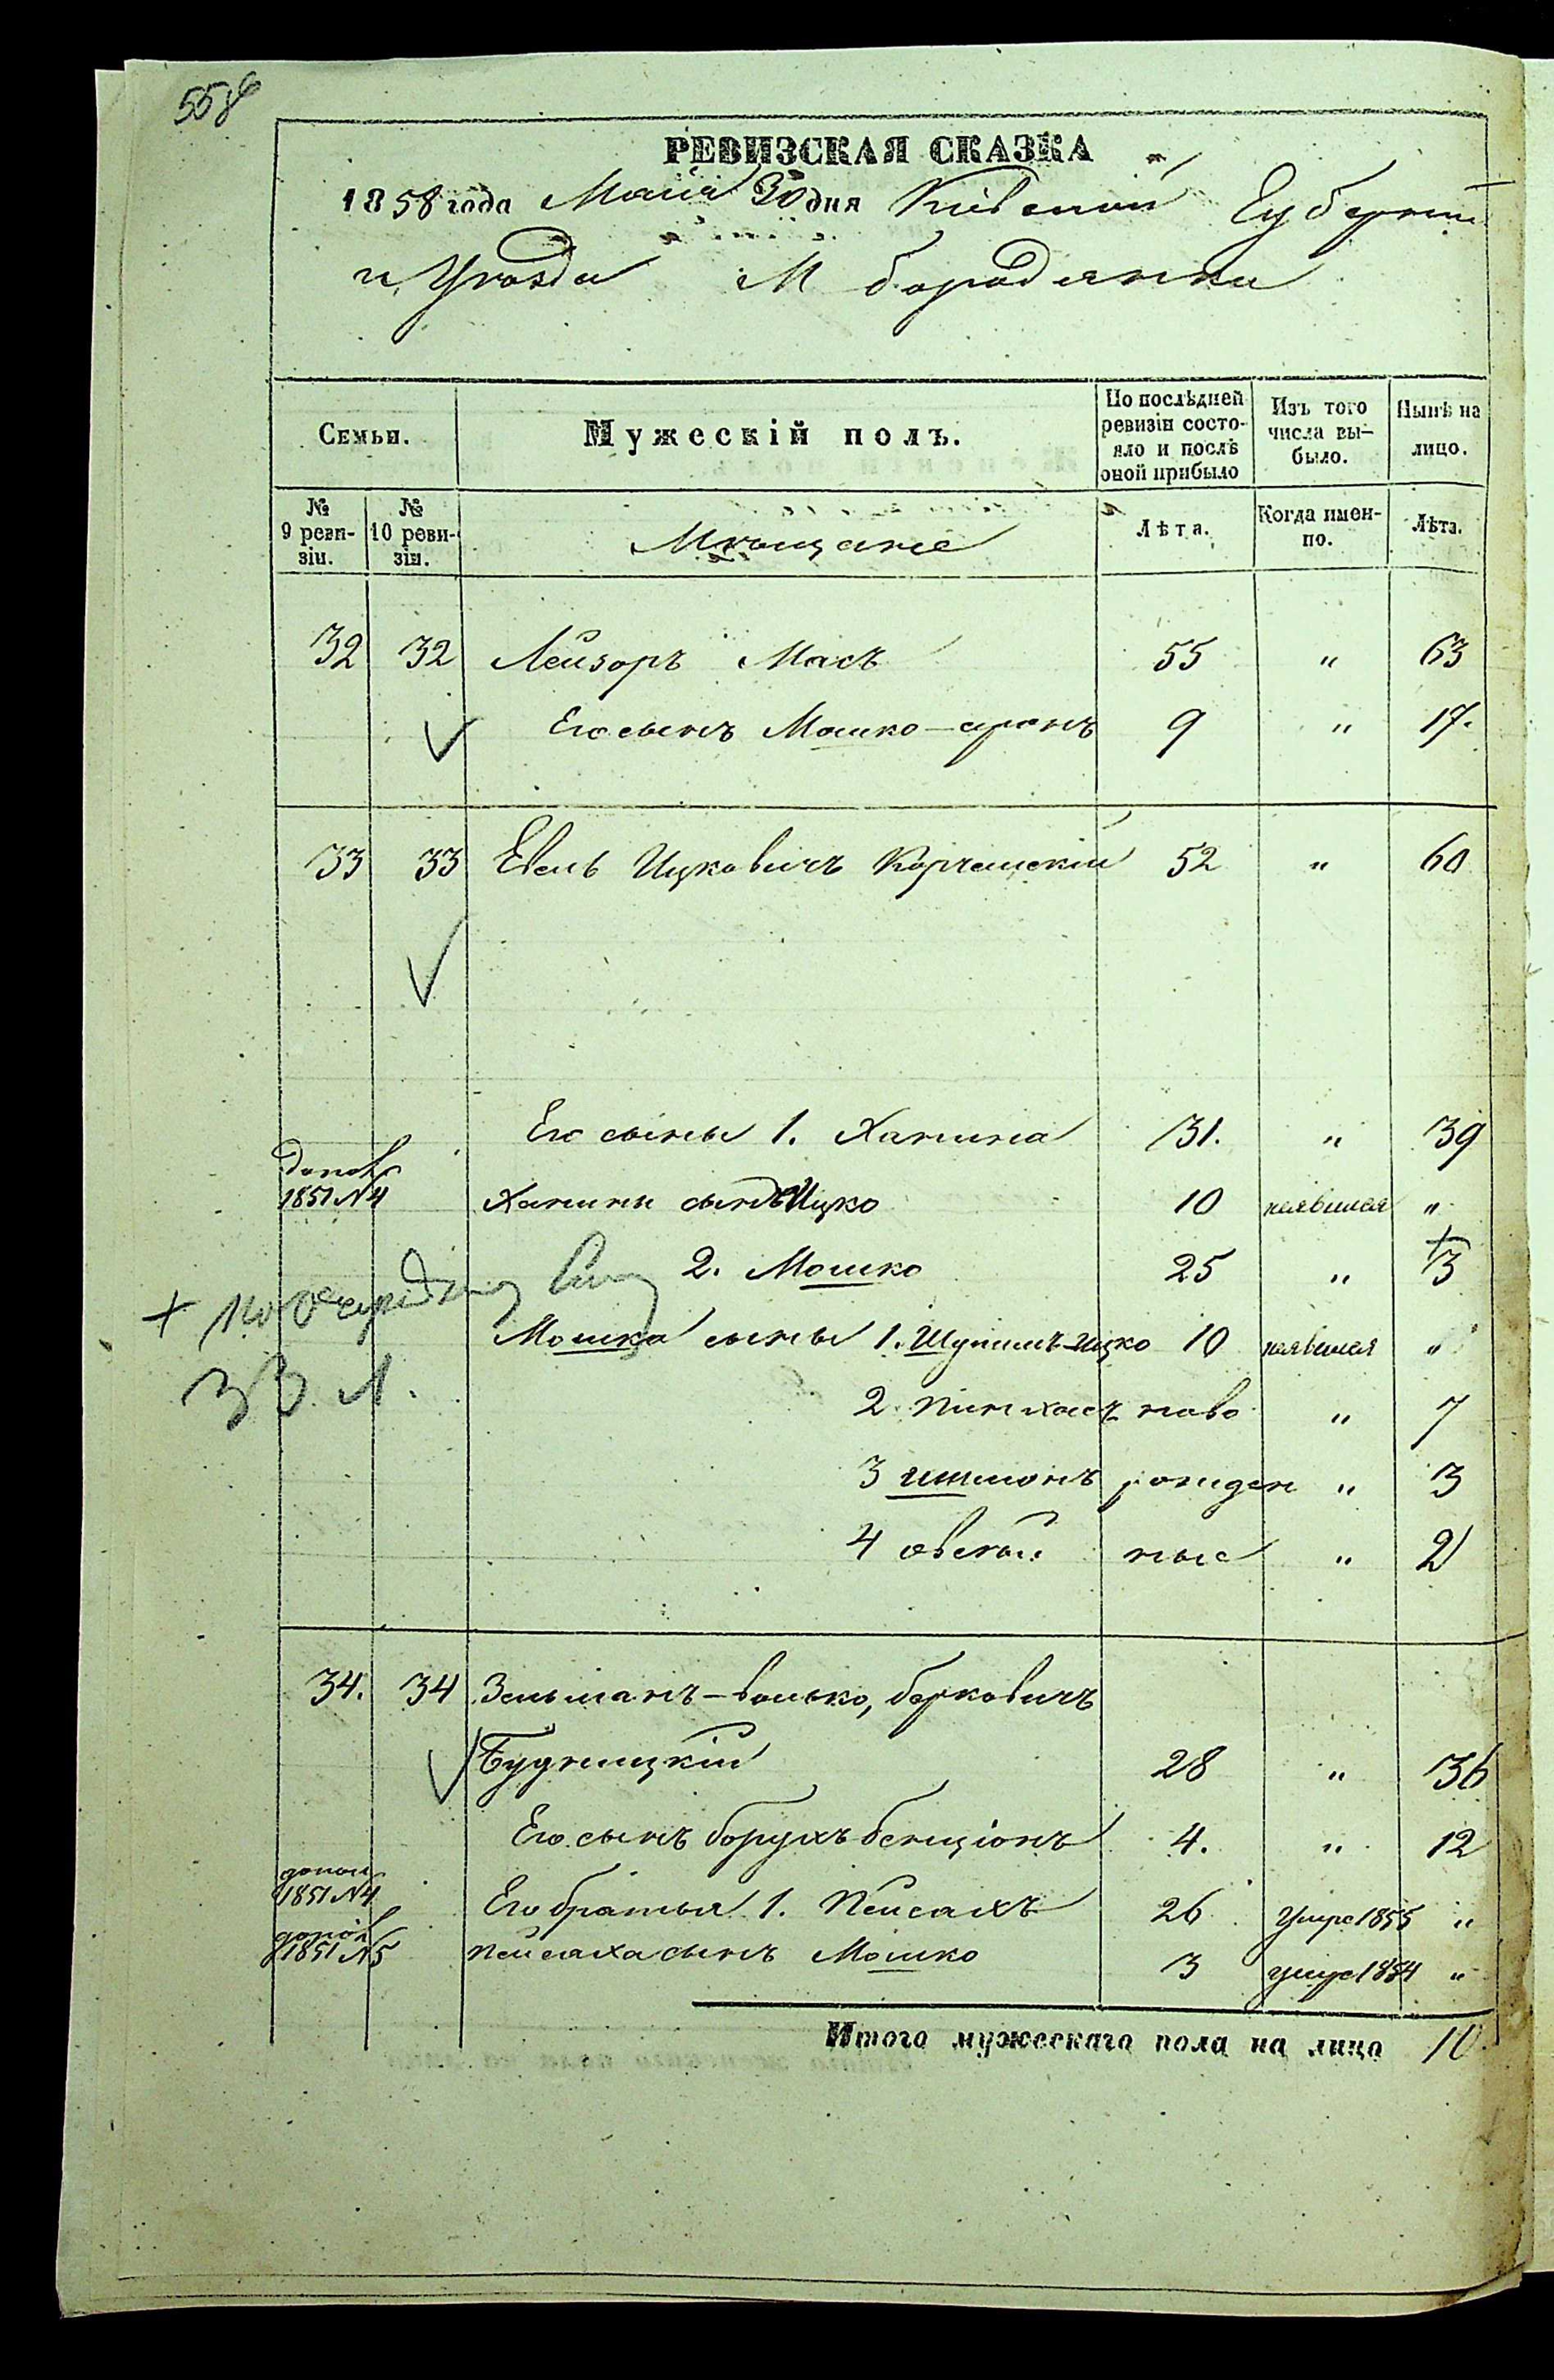 558
РЕВИЗСКАЯ СКАЗКА
1858 года Маія 30 дня Кіевской Губерніи
и Уезда М бородянки
Семьи.
Мужескій полъ.
По послѣдней ревизіи состояло и послѣ оной прибыло
Изъ того числа выбыло.
Нынѣ на лицо.
№ 9 ревизіи.
№ 10 ревизіи.
Мещане
Лѣта.
Когда именно.
Лѣта.
32 32 Лейзоръ Масъ 55 " 63
Его сынъ Мошко-аронъ 9 " 17.
33 33 Евель Ицковичъ Корчемскій 52 " 60
Его сыны 1. Ханина 31. " 39
допол 1851 N4 Ханины сынъ Ицко 10 неявился "
2. Мошко 25 " + 3
+ по очередному
33 л.
Мошка сыны 1. Шулимъ-ицко 10 неявился "
2 Пинхасъ ново " 7
3 шимонъ рожден " 3
4 овсей ные " 2
34. 34 Зельманъ-волько, берковичъ
Будницкій 28 " 36
Его сынъ борухъ-бенціонъ 4. " 12
допол 1851 N4 Его братья 1. Пейсахъ 26 умре 1855 "
допол 1851 N5 Пейсаха сынъ Мошко 3 умре 1854 "
Итого мужескаго пола на лицо 10